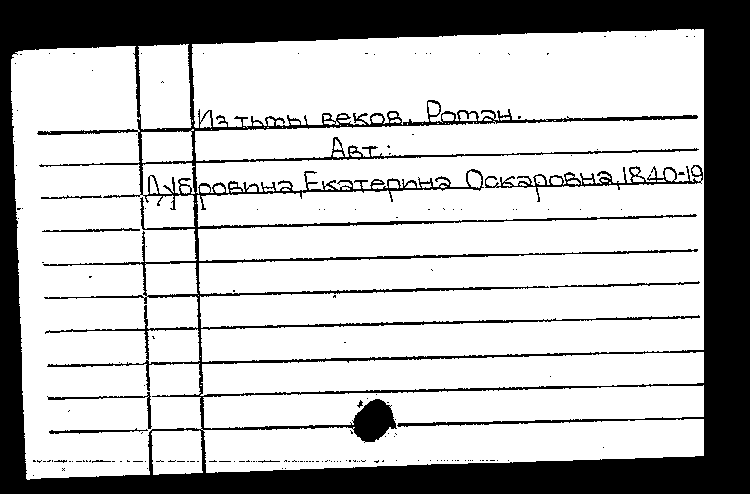 Из тьмы веков. Роман.
Авт.:
Дубровина, Екатерина Оскаровна, 1840-19